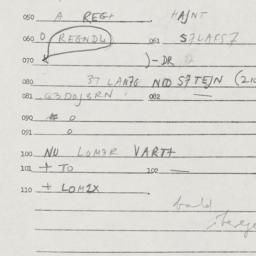 050 A REGH HAJNT
060 O REGNDL 061 S7LAFS7
070 )-DR
080 3T LAN7G NID S7TEJN
081 G3DOJ3RN 082 —
090
091 o
100 NU LOM3R VART+
101 + TO 102 —
110 + LOM2X
bald